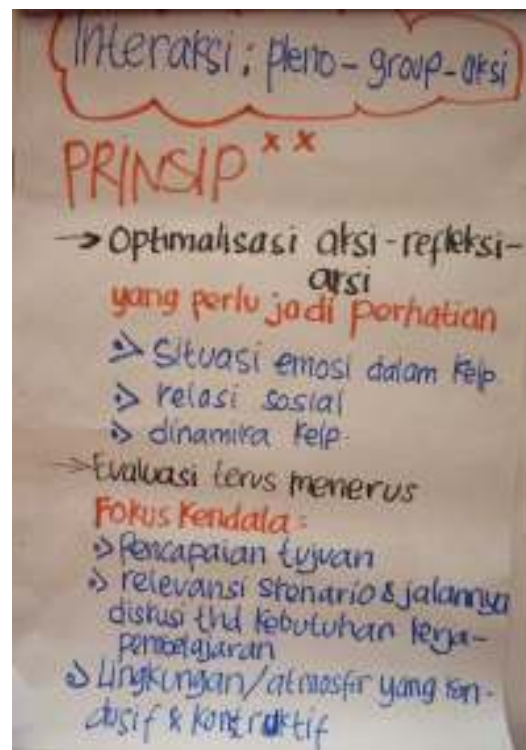 Interaksi : pleno - group - aksi
PRINSIP **
→ Optimalisasi aksi - refleksi -
aksi
yang perlu jadi perhatian
➢ Situasi emosi dalam kelp.
➢ relasi sosial
➢ dinamika kelp.
→ Evaluasi terus menerus
Fokus kendala :
➢ Pencapaian tujuan
➢ relevansi skenario & jalannya
diskusi thd kebutuhan kerja -
pembelajaran
➢ Lingkungan / atmosfir yang kon -
dusif & konstruktif